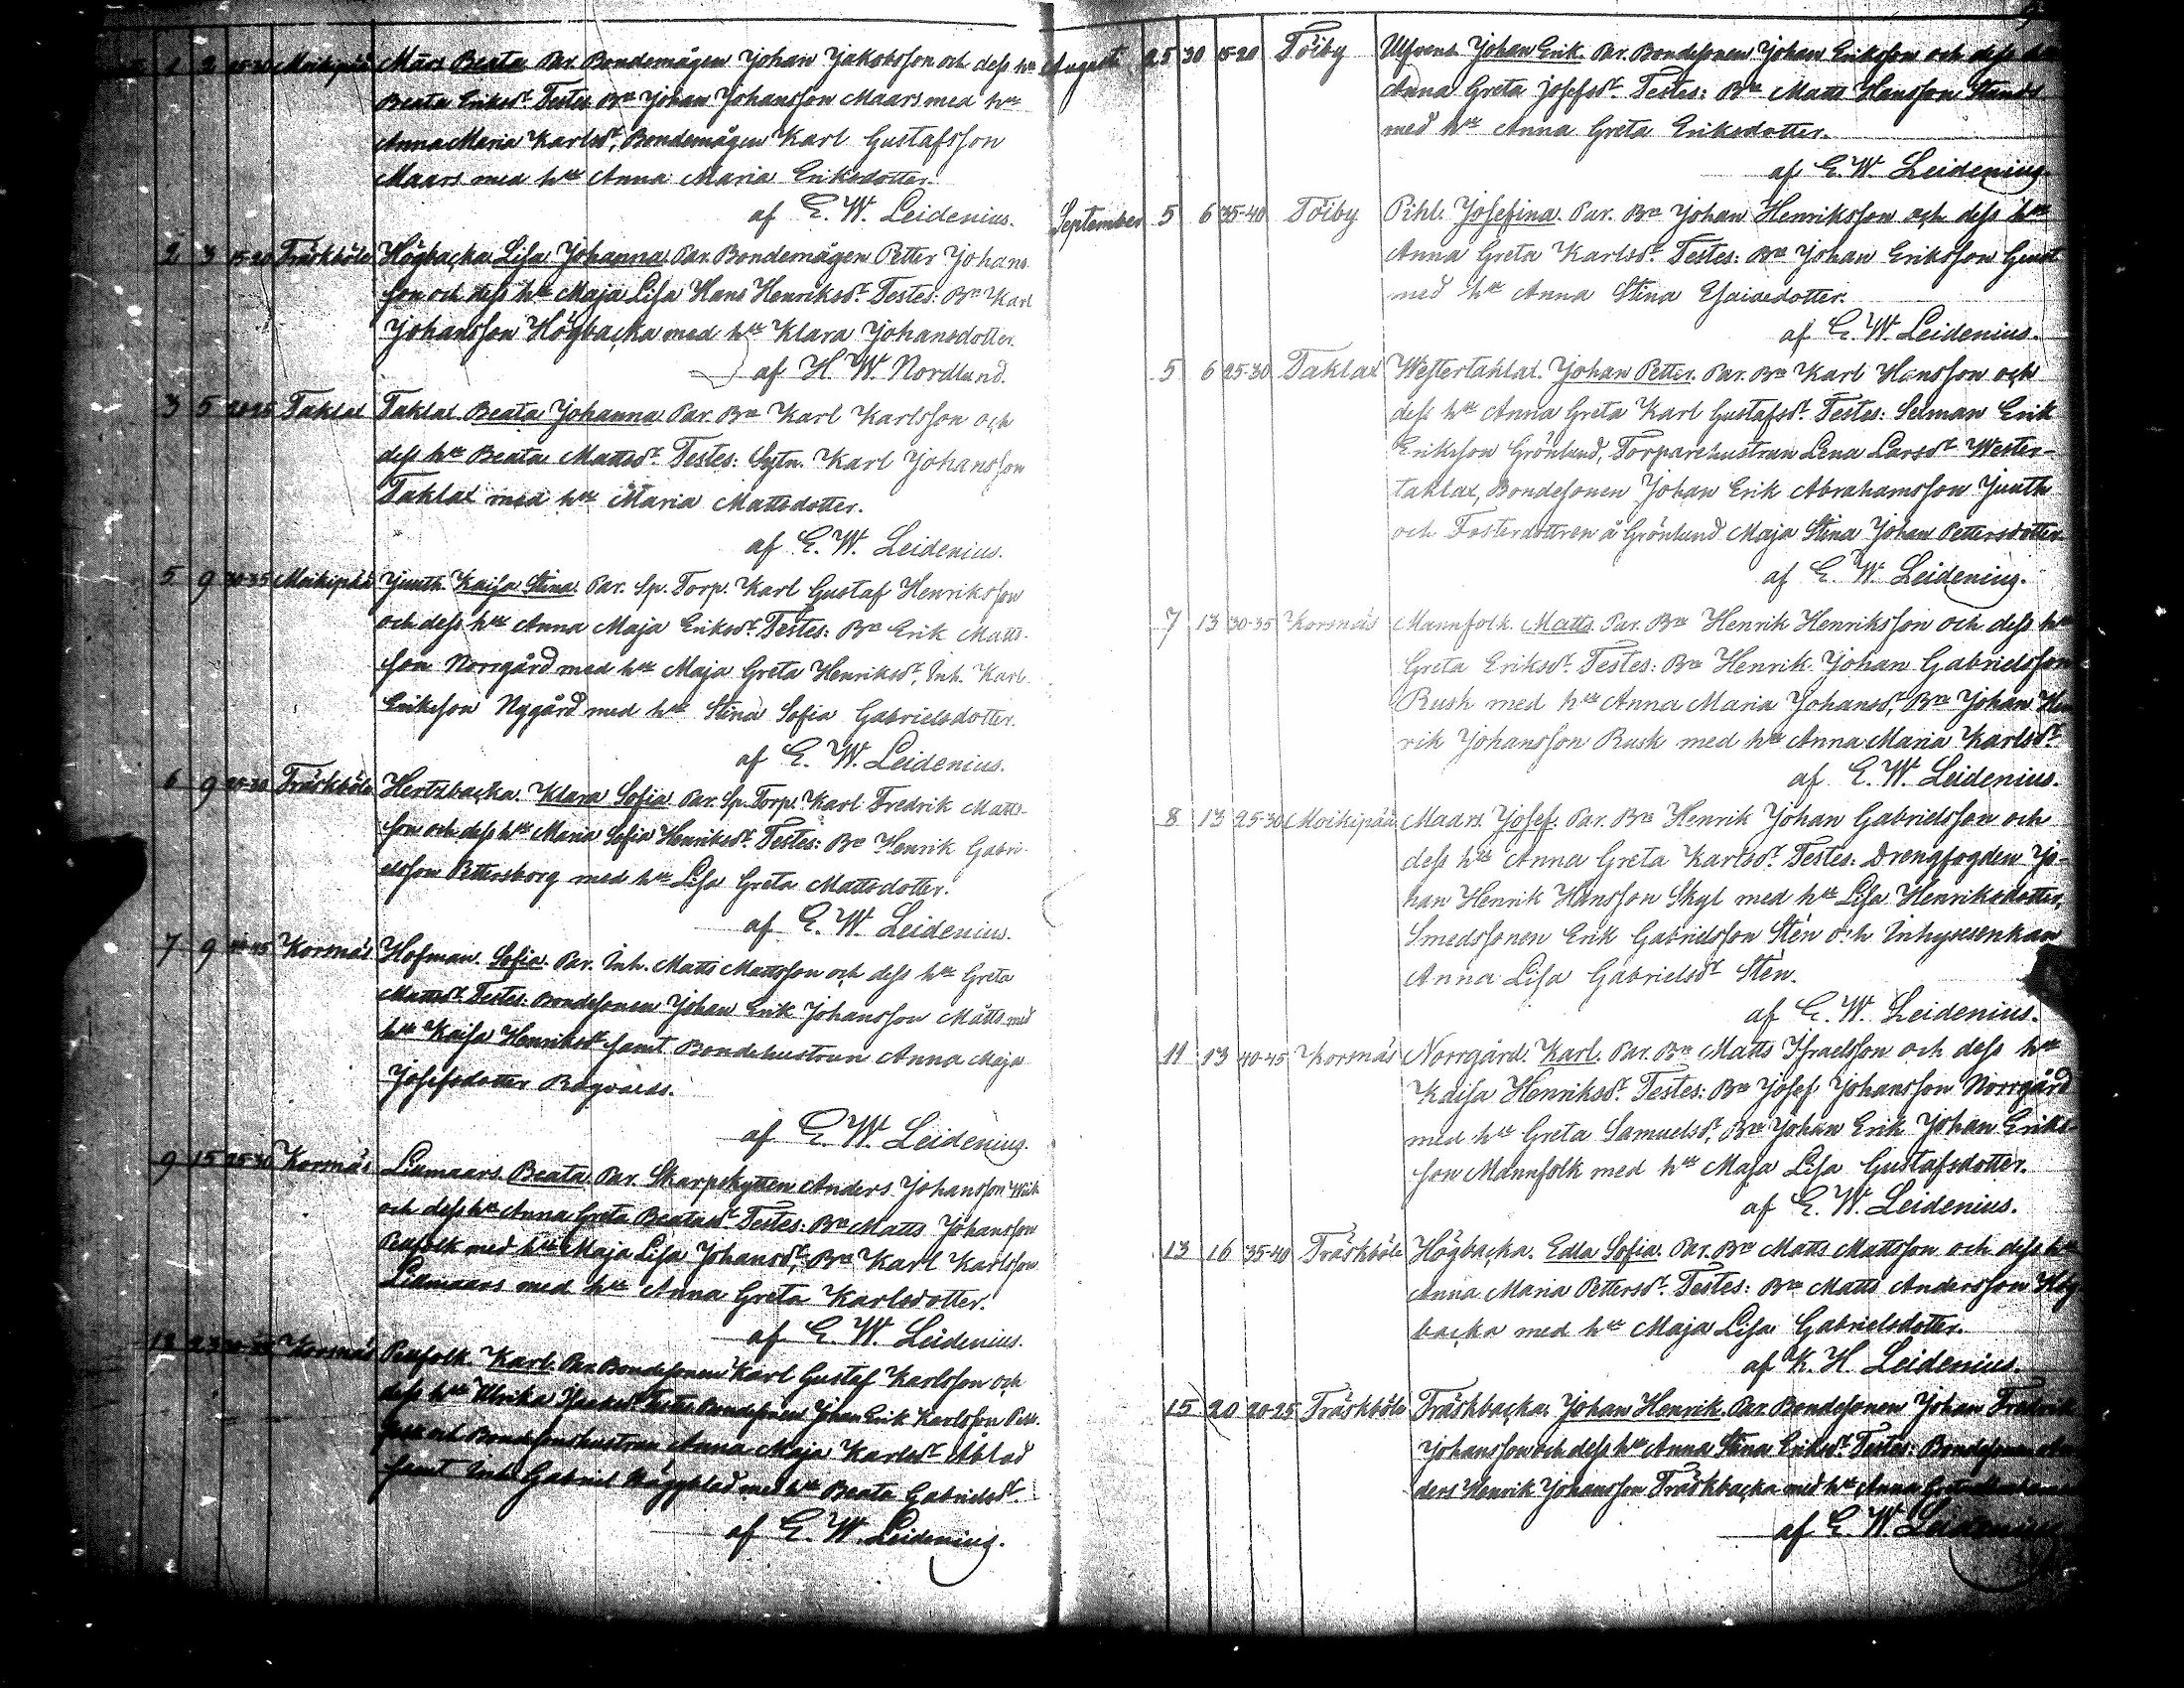 1 3 25-30 Moikipää Mårs Beata Par. Bondemågen Johan Jakobsson och dess hu
Beata Eriksdr. Testes Bn Johan Johansson Maars med hu
Anna Maria Karlsdr, Bondemågen Karl Gustafsson
Maars med hu Anna Maria Eriksdotter.
af E. W. Leidenius.
2 3 15-20 Träskböle Högbacka Lisa Johanna Par. Bondemågen Petter Johans
son och dess hu Maja Lisa Hans Henriksdr. Testes: Bn Karl
Johansson Högbacka med hu Klara Johansdotter.
af H. W. Nordlund.
3 5 20-25 Taklax Taklax Beata Johanna Par. Bn Karl Karlsson och
dess hu Beata Mattsdr. Testes: Sytn. Karl Johansson
Taklax med hu Maria Mattsdotter.
af E. W. Leidenius.
5 9 30-35 Moikipää Juuth Kajsa Stina Par. Sp. Torp. Karl Gustaf Henriksson
och dess hu Anna Maja Eriksdr. Testes: Bn Erik Matts-
son Norrgård med hu Maja Greta Henriksdr, Inh. Karl
Eriksson Nygård med hu Stina Sofia Gabrielsdotter.
af E. W. Leidenius.
6 9 Träskböle Hertzbacka. Klara Sofia Par. Sp. Torp. Karl Fredrik Matts-
son och dess hu Maria Sofia Henriksdr. Testes: Bn Henrik Gabri-
elsson Pettersborg med hu Lisa Greta Mattsdotter.
af E. W. Leidenius.
7 9 Korsnäs Hofman. Sofia. Par. Inh. Matts Mattsson och dess hu Greta
Mattsdr. Testes: Bondesonen Johan Erik Johansson Mátts med
hu Kajsa Henriksdr samt Bondehustrun Anna Maja
Josefsdotter Ragvalds.
af E. W. Leidenius.
9 15 25-30 Korsnäs Lismaars Beata Par. Skarpskytten Anders Johansson Wiik
och dess hu Anna Greta Beatasdr. Testes: Bn Matts Johansson
Penfolk med hu Maja Lisa Johansdr, Bn Karl Karlsson
Lismaars med hu Anna Greta Karlsdotter.
af E. W. Leidenius.
12 23 Korsnäs Penfolk. Karl. Par. Bondesonen Karl Gustaf Karlsson och
dess hu Ulrika Isaksdr. Testes Bondesonen Johan Erik Karlsson
och Bondesonshustrun Anna Maja Karlsdr Åblad
samt Inh. Gabriel Häggblad med hu Beata Gabrielsdr.
af E. W. Leidenius.
Augusti 25 30 15-20 Töiby Ulfvent Johan Erik. Par. Bondesonen Johan Eriksson och dess hu
Anna Greta Josefsdr. Testes: Bn Matts Hansson Stands
med hu Anna Greta Eriksdotter.
af E. W. Leidenius.
September 5 6 35-40 Töiby Pihl. Josefina. Par. Bn Johan Henriksson och dess hu
Anna Greta Karlsdr. Testes: Bn Johan Eriksson
med hu Anna Stina Esaiædotter.
af E. W. Leidenius.
5 6 25-30 Taklax Westertaklax. Johan Petter. Par. Bn Karl Hansson och
dess hu Anna Greta Karl Gustafsdr. Testes: Selman Erik
Eriksson Grönlund, Torparehustrun Lena Larsdr Wester-
taklax, Bondesonen Johan Erik Abrahamsson Juuth
och Fosterdottren å Grönlund Maja Stina Johan Pettersdotter
af E. W. Leidenius.
7 13 30-35 Korsnäs Mannfolk. Matts. Par. Bn Henrik Henriksson och dess hu
Greta Eriksdr. Testes: Bn Henrik Johan Gabrielsson
Rusk med hu Anna Maria Johansdr, Bn Johan Hen
rik Johansson Rusk med hu Anna Maria Karlsdr.
af E. W. Leidenius.
8 13 25-30 Moikipää Maars. Josef. Par. Bn Henrik Johan Gabrielsson och
dess hu Anna Greta Karlsdr. Testes: Drengfogden Jo-
han Henrik Hansson Skyl med hu Lisa Henriksdotter,
Smedssonen Erik Gabrielsson Stén och Inhysesenkan
Anna Lisa Gabrielsdr Stén.
af E. W. Leidenius.
11 13 40-45 Korsnäs Norrgård. Karl. Par. Bn Matts Israelsson och dess hu
Kajsa Henriksdr. Testes: Bn Josef Johansson Norrgård
med hu Greta Samuelsdr, Bn Johan Erik Johan Eriks-
son Mannfolk med hu Maja Lisa Gustafsdotter.
af E. W. Leidenius.
13 16 35-40 Träskböle Högbacka. Edla Sofia. Par. Bn Matts Mattsson och dess hu
Anna Maria Pettersdr. Testes: Bn Matts Andersson Hög
backa med hu Maja Lisa Gabrielsdotter.
af K. H. Leidenius.
15 20 20-25 Träskböle Träskbacka. Johan Henrik. Par. Bondesonen Johan Fredrik
Johansson och dess hu Anna Stina Eriksdr. Testes: Bondesonen An
ders Henrik Johansson Träskbacka med hu Anna
af E. W. Leidenius.